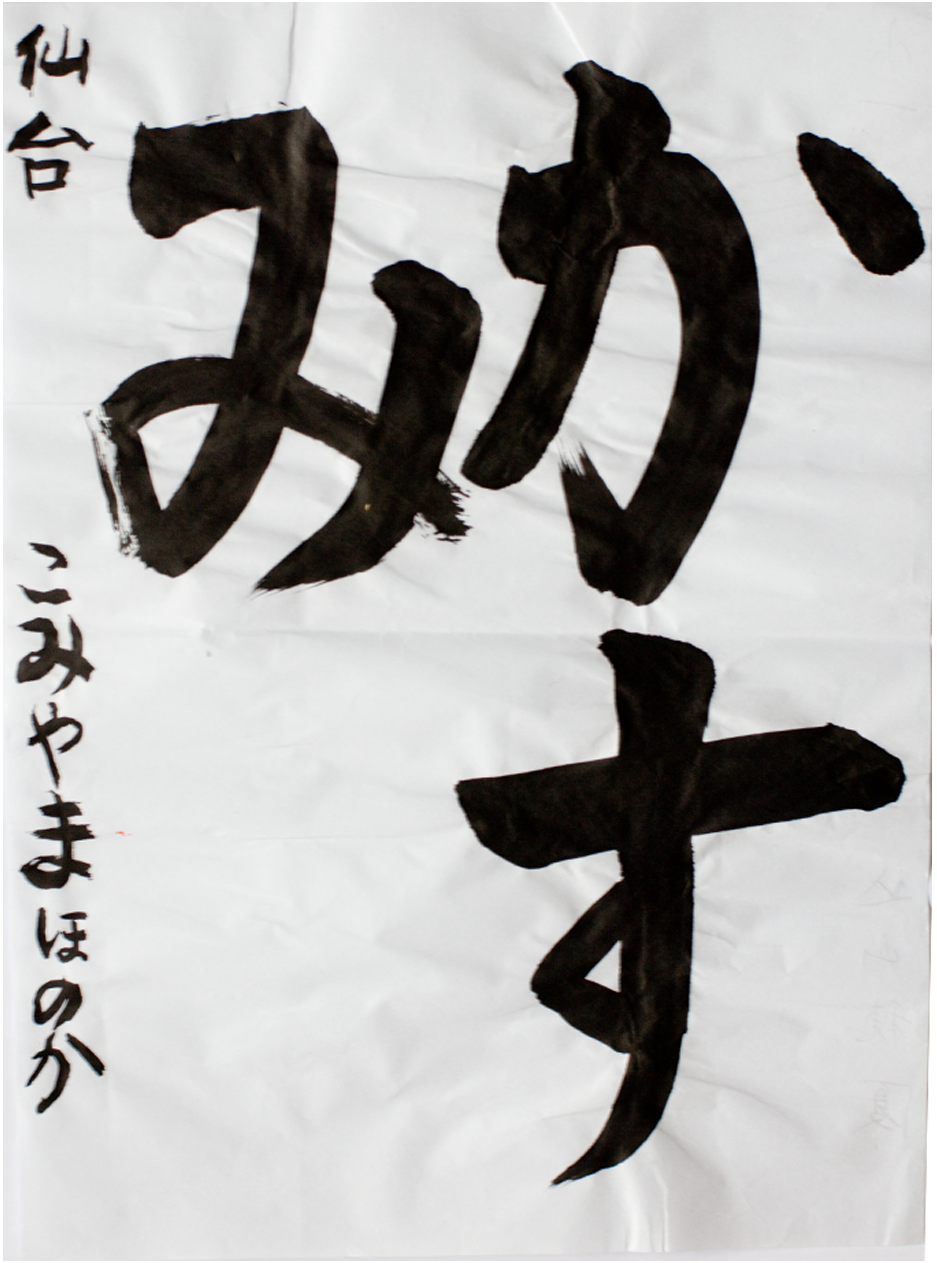 かす
み
仙台 こみやまほのか